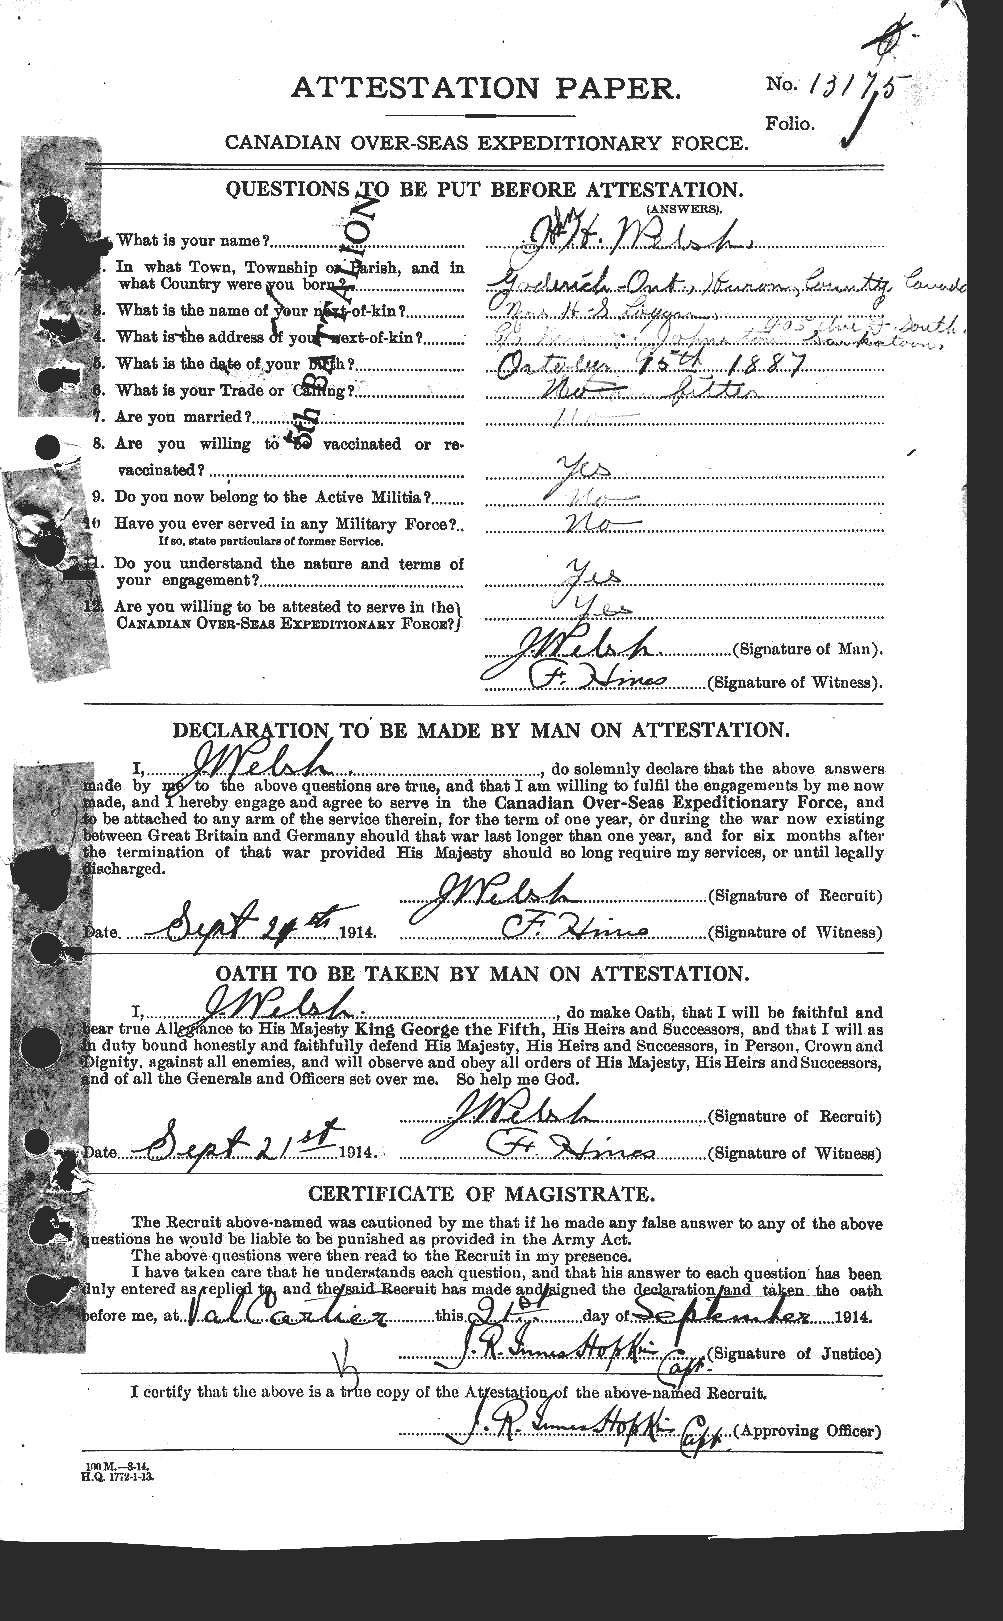 No. 13175
ATTESTATION PAPER.
Folio.
CANADIAN OVER-SEAS EXPEDITIONARY FORCE.
QUESTIONS TO BE PUT BEFORE ATTESTATION.
(ANSWERS).
5th BATTALION
What is your name? H. Welsh.
In what Town, Township or Parish, and in
what Country were you born? Goderich Ont., Huron, County, Canada
3. What is the name of your next-of-kin? Mrs H. S.
4. What is the address of your next-of-kin? South
5. What is the date of your birth? October 15th 1887
6. What is your Trade or Calling? fitter
7. Are you married? No
8. Are you willing to be vaccinated or re-
vaccinated? Yes
9. Do you now belong to the Active Militia? No
10 Have you ever served in any Military Force?.. No
If so, state particulars of former Service.
11. Do you understand the nature and terms of
your engagement? Yes
12. Are you willing to be attested to serve in the
CANADIAN OVER-SEAS EXPEDITIONARY FORCE? Yes
J Welsh. (Signature of Man).
F. Hines (Signature of Witness).
DECLARATION TO BE MADE BY MAN ON ATTESTATION.
I, J Welsh, do solemnly declare that the above answers
made by me to the above questions are true, and that I am willing to fulfil the engagements by me now
made, and I hereby engage and agree to serve in the Canadian Over-Seas Expeditionary Force, and
to be attached to any arm of the service therein, for the term of one year, or during the war now existing
between Great Britain and Germany should that war last longer than one year, and for six months after
the termination of that war provided His Majesty should so long require my services, or until legally
discharged.
J Welsh (Signature of Recruit)
Date. Sept 21st 1914. F. Hines (Signature of Witness)
OATH TO BE TAKEN BY MAN ON ATTESTATION.
I, J Welsh, do make Oath, that I will be faithful and
bear true Allegiance to His Majesty King George the Fifth, His Heirs and Successors, and that I will as
in duty bound honestly and faithfully defend His Majesty, His Heirs and Successors, in Person, Crown and
Dignity, against all enemies, and will observe and obey all orders of His Majesty, His Heirs and Successors,
and of all the Generals and Officers set over me. So help me God.
J Welsh (Signature of Recruit)
Date Sept 21st 1914. F. Hines (Signature of Witness)
CERTIFICATE OF MAGISTRATE.
The Recruit above-named was cautioned by me that if he made any false answer to any of the above
questions he would be liable to be punished as provided in the Army Act.
The above questions were then read to the Recruit in my presence.
I have taken care that he understands each question, and that his answer to each question has been
duly entered as replied to, and the said Recruit has made and signed the declaration and taken the oath
before me, at Val Cartier this 21st day of September 1914.
J. R. Innes Hopkin Capt. (Signature of Justice)
I certify that the above is a true copy of the Attestation of the above-named Recruit.
J. R. Innes Hopkin Capt. (Approving Officer)
100 M.—8-14.
H.Q. 1772-1-13.